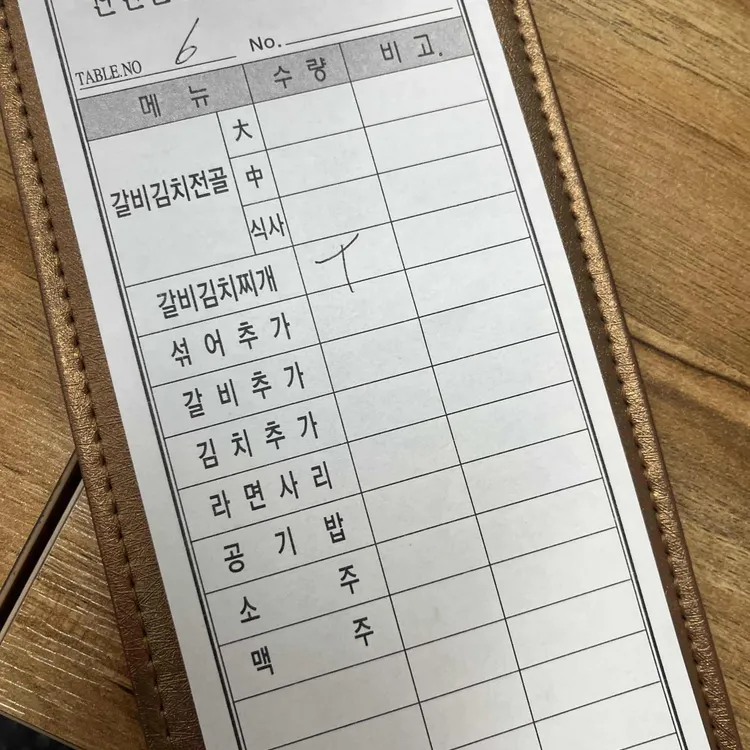 TABLE.NO 6 No.
메 뉴 수 량 비 고.
갈비김치전골 大
中
식사
갈비김치찌개 T
섞 어 추 가
갈 비 추 가
김 치 추 가
라 면 사 리
공 기 밥
소 주
맥 주